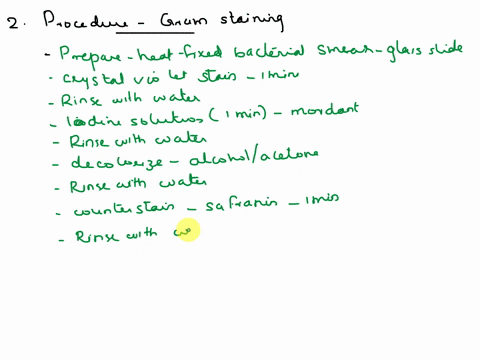 2. Procedure - Gram staining
- Prepare - heat-fixed bacterial smear - glass slide
- crystal violet stain - 1 min
- Rinse with water
- Iodine solution (1 min) - mordant
- Rinse with water
- decolorize - alcohol/acetone
- Rinse with water
- counterstain - safranin - 1 min
- Rinse with